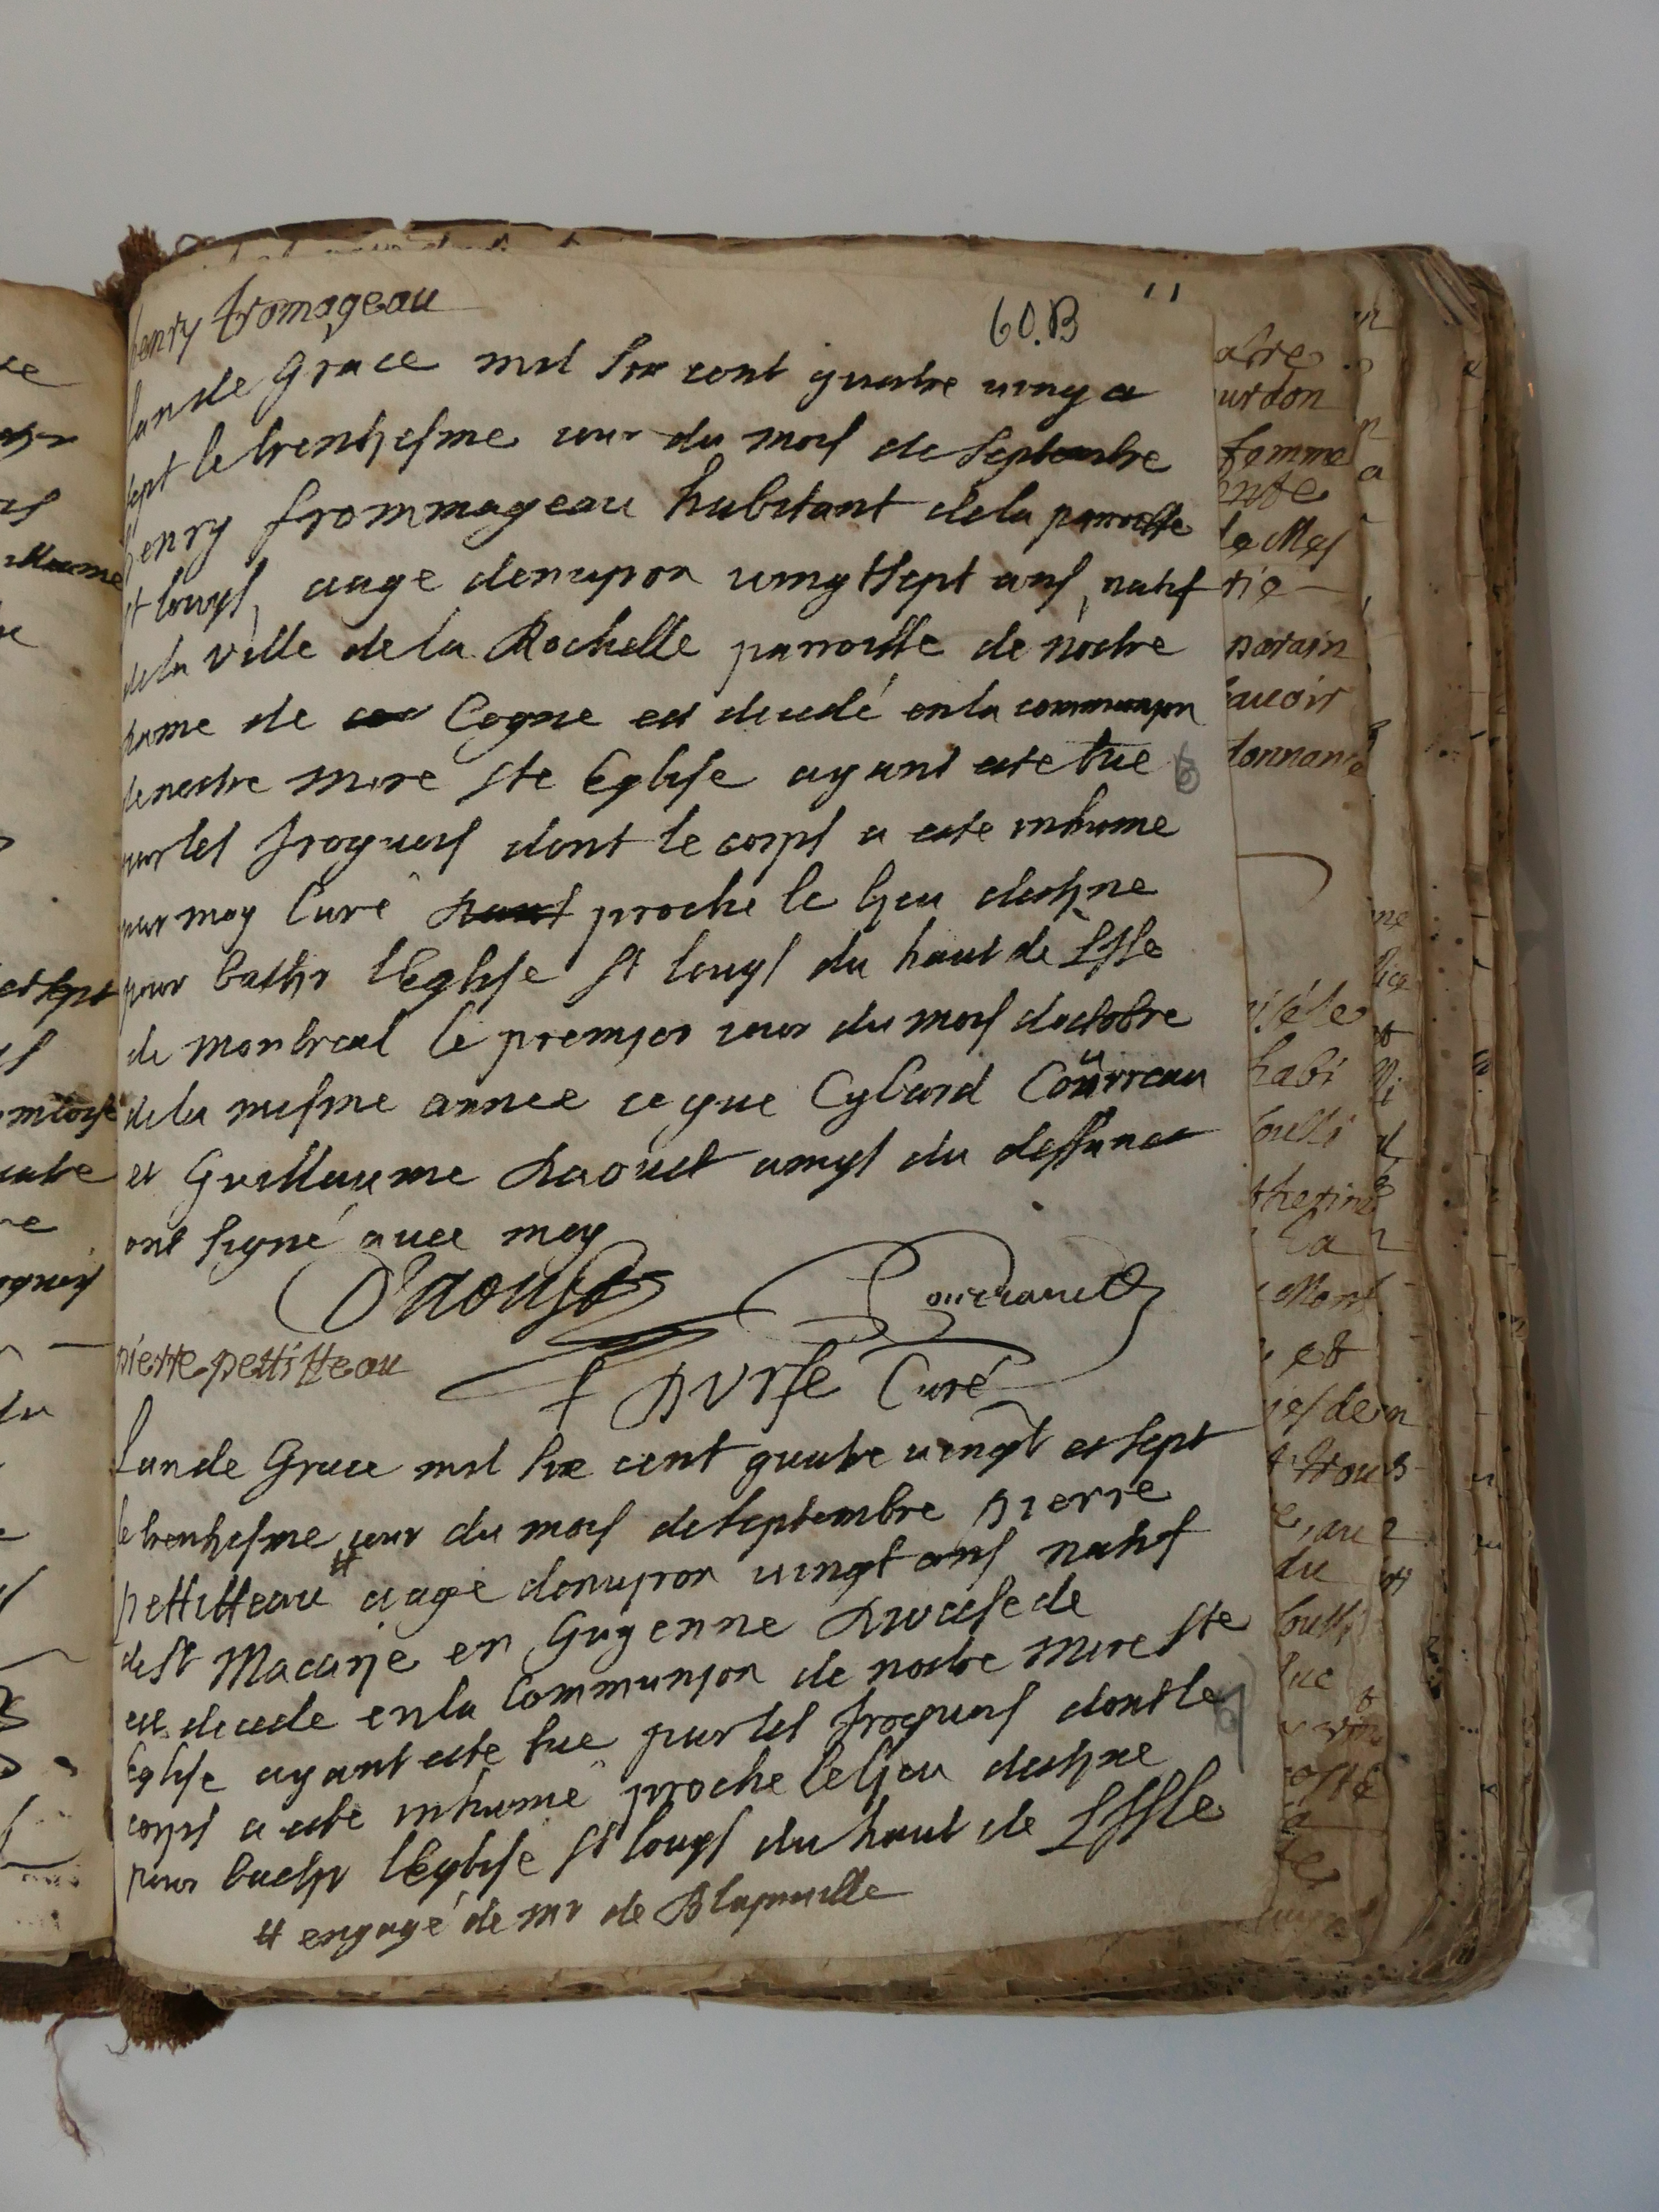 henry fromageau
60.B
11
Lan de Grace mil six cent quatre vingt
sept le trentiesme iour du mois de septembre
henry frommageau habitant de la parroisse
st louys, aage denuiron vingtsept ans, natif
de la ville de la Rochelle parroisse de nostre
dame de Cogne est decedé en la communion
de nostre mere ste Eglise ayant este tue
par les Iroquois dont le corps a este inhume
par moy Curé proche le lieu destine
pour bastir lEglise st louys du haut de LIsle
de montreal le premier iour du mois doctobre
de la mesme annee ce que Cybard Coürreau
et Guillaume daoust amys du deffunct
ont signé auec moy
Daoust
Courraud
pierre pettitteau
DVrfe Curé
Lan de Grace mil six cent quatre vingt et sept
le trentiesme iour du mois de septembre pierre
pettitteau # aage denuiron vingt ans natif
de st Macarie en Guyenne diocese de
est decede en la Communion de nostre mere ste
Eglise ayant este tue par les Iroquois dont le
corps a este inhumé proche le lieu destine
pour bastir lEglise st louys du haut de LIsle
# engagé de mr de Blainuille